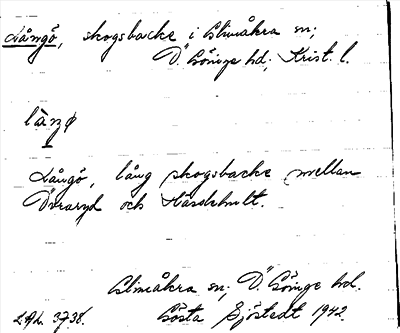 Långö, skogsbacke i Glimåkra sn;
Ö. Göinge hd; Krist. l.
låŋø
Långö, lång skogsbacke mellan
Övraryd och Hässlehult.
Glimåkra sn; Ö. Göinge hd.
Gösta Sjöstedt 1942.